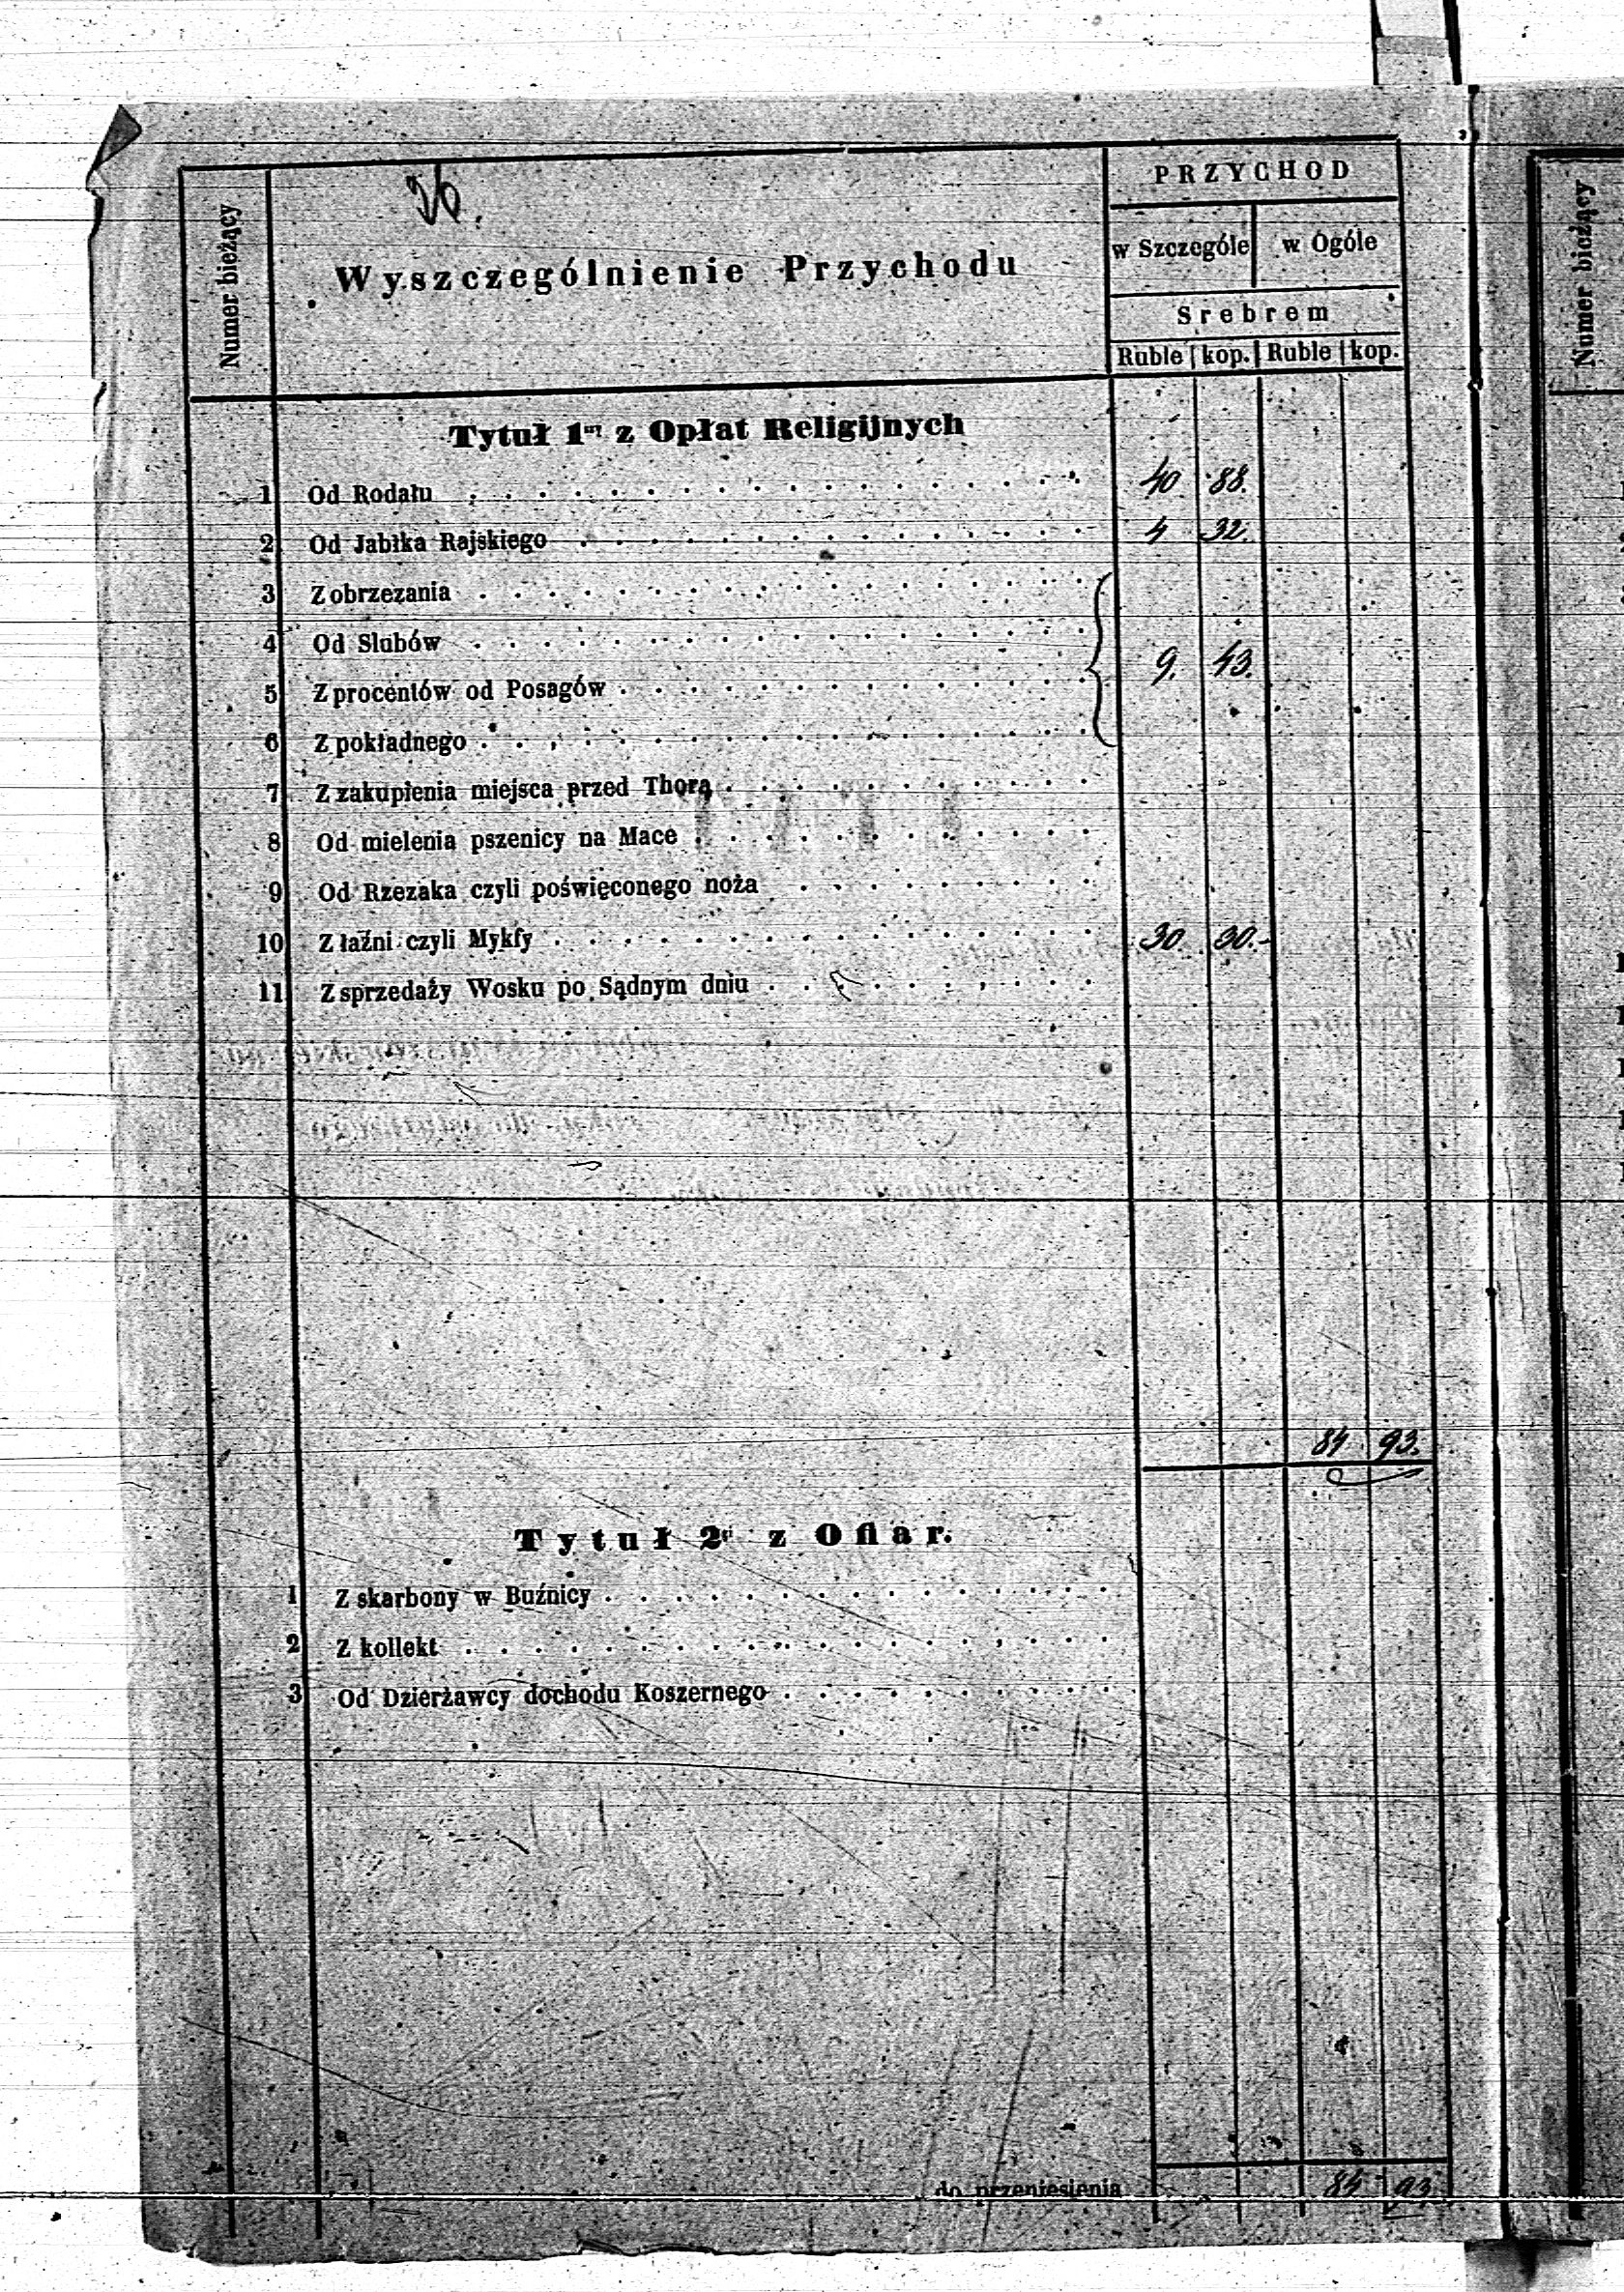 36.
Numer bieżący
Wyszczególnienie Przychodu
PRZYCHOD
w Szczególe w Ogóle
Srebrem
Ruble kop. Ruble kop.
Numer bieżący
Tytuł 1ny z Opłat Religijnych
1 Od Rodału 40 88.
2 Od Jabłka Rajskiego 4 32.
3 Z obrzezania
4 Od Slubów
9. 43.
5 Z procentów od Posagów
6 Z pokładnego
7 Z zakupienia miejsca przed Thorą
8 Od mielenia pszenicy na Mace
9 Od Rzezaka czyli poświęconego noża
10 Z łaźni czyli Mykfy 30 30.-
11 Z sprzedaży Wosku po Sądnym dniu
84 93.
Tytuł 2gi z Ofiar.
1 Z skarbony w Buźnicy
2 Z kollekt
3 Od Dzierżawcy dochodu Koszernego
do przeniesienia 84 93